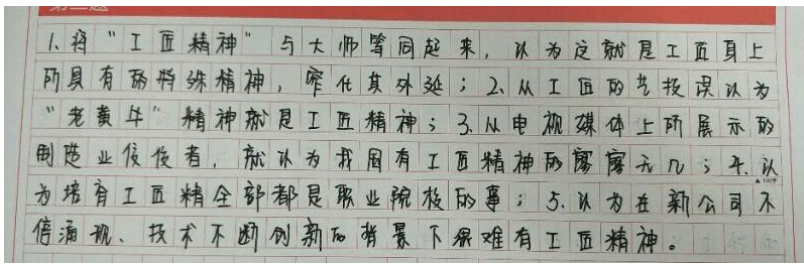 1.将“工匠精神”与大师等同起来,认为这就是工匠身上
所具有的特殊精神,窄化其外延;2.从工匠的艺技误认为
“老黄牛”精神就是工匠精神;3.从电视媒体上所展示的
制造业佼佼者,就认为我国有工匠精神的寥寥无几;4.认
为培育工匠精全部都是职业院校的事;5.认为在新公司不
停涌现、技术不断创新的背景下很难有工匠精神。